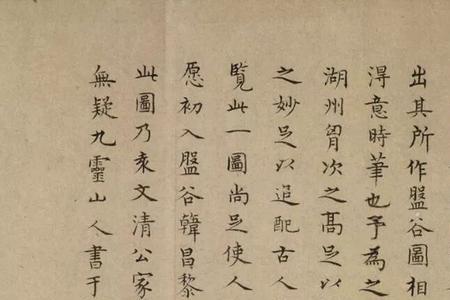 出其所作盤谷圖相
淂意時筆也予為之
湖州胷次之髙足以
之妙足以追配古人
覽此一圖尚足使人
愿初入盤谷韓昌黎
此圖乃袁文清公家
無疑九靈山人書于